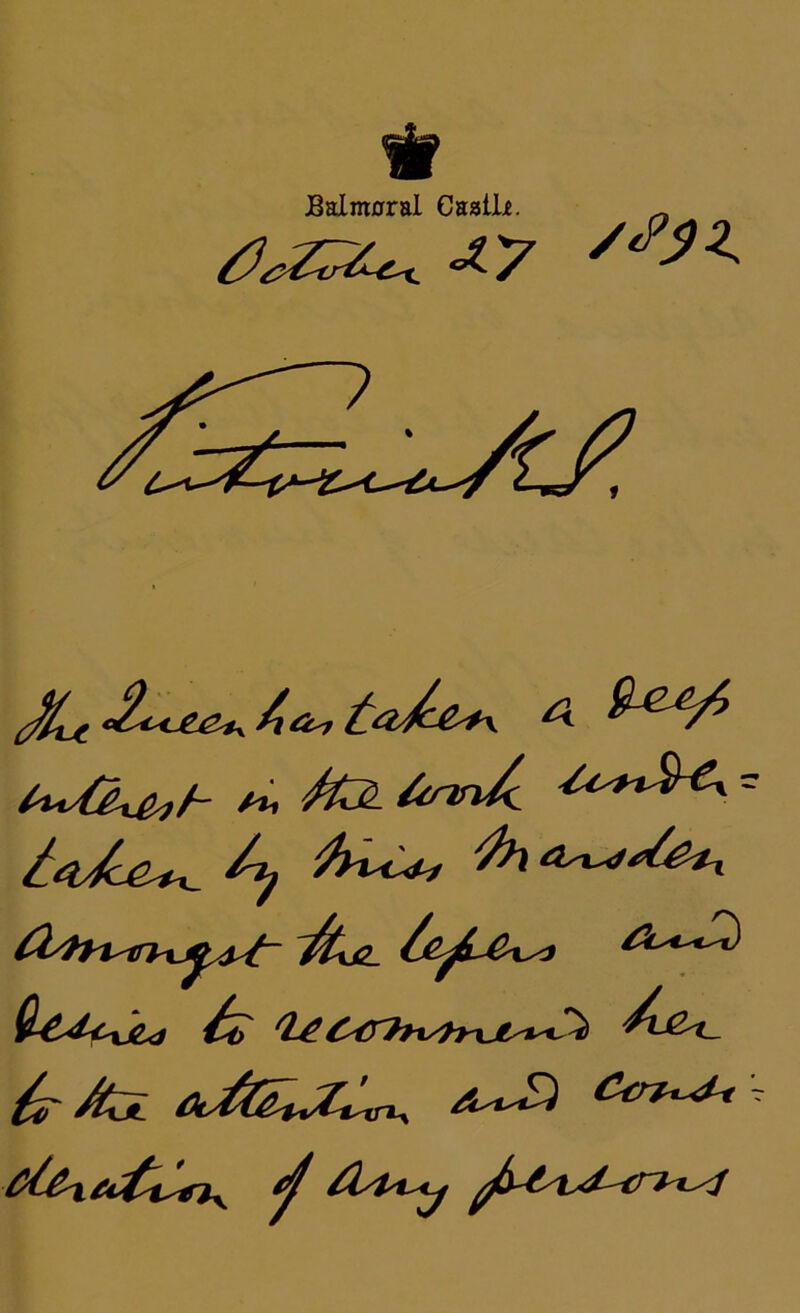 Balmoral Castle.
October 27 1892
The Queen has taken a deep
interest in the work under=
taken by Miss Marsden
amongst the lepers and
desires to recommend her
to the attention and consi-
deration of any persons